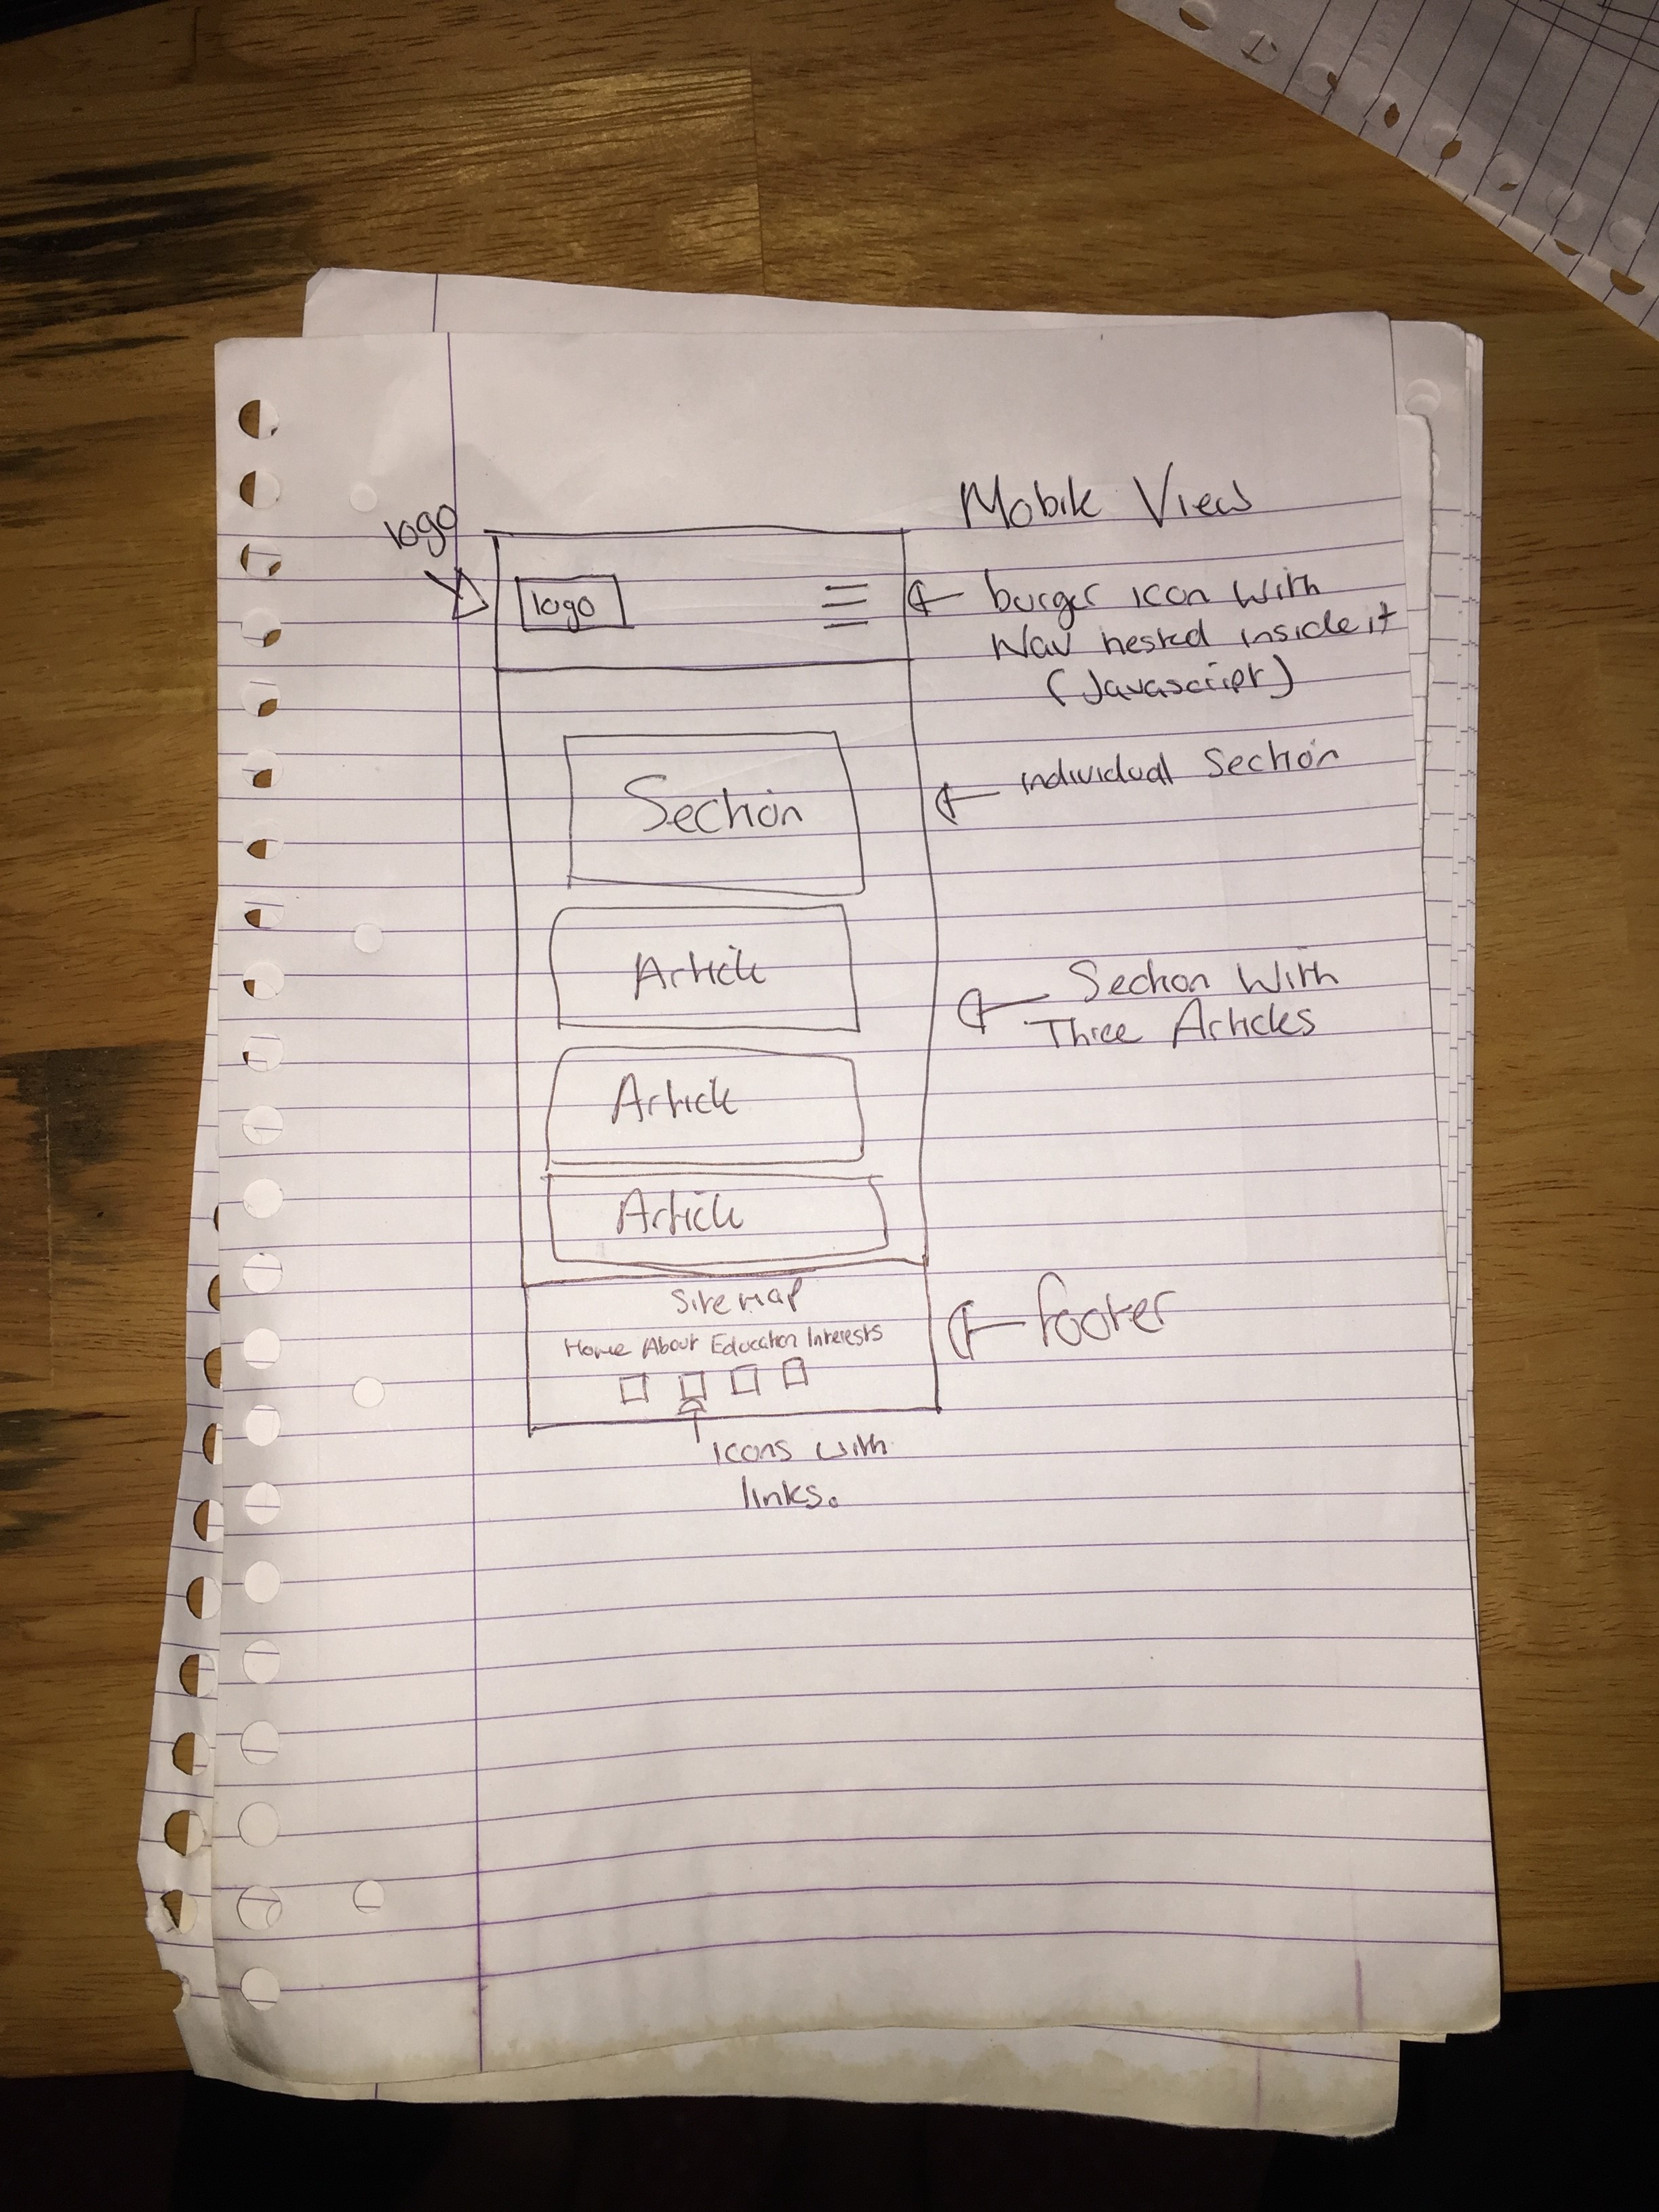 Mobile View
logo
logo
burger icon with
Nav nested inside it
(Javascript)
Section
individual Section
Article
Section With
Three Articles
Article
Article
Sitemap
Home About Education Interests
footer
icons with
links.